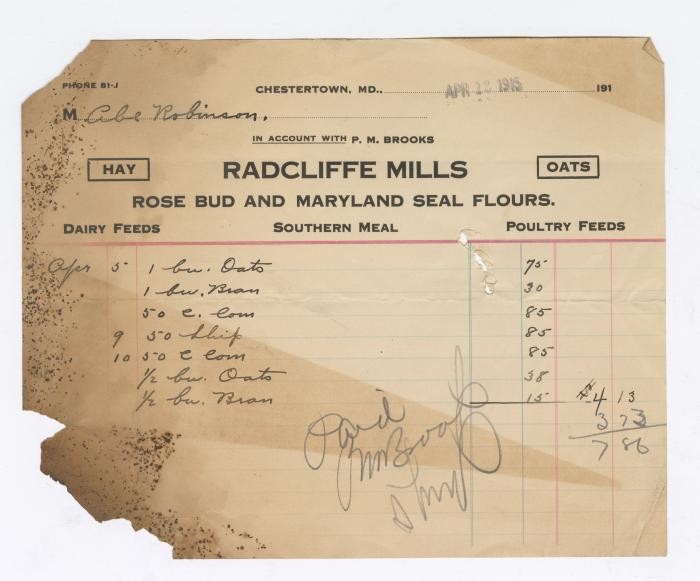 PHONE 81-J
CHESTERTOWN, MD., APR 12 1915 191
M Abe Robinson.
IN ACCOUNT WITH P. M. BROOKS
HAY RADCLIFFE MILLS OATS
ROSE BUD AND MARYLAND SEAL FLOURS.
DAIRY FEEDS SOUTHERN MEAL POULTRY FEEDS
Apr 5 1 bu. Oats 75
1 bu. Bran 30
50 C. Corn 85
9 50 Ship 85
10 50 C Corn 85
1/2 bu. Oats 38
1/2 bu. Bran 15 $4 13
3 73
7 86
Paid
PM Brooks